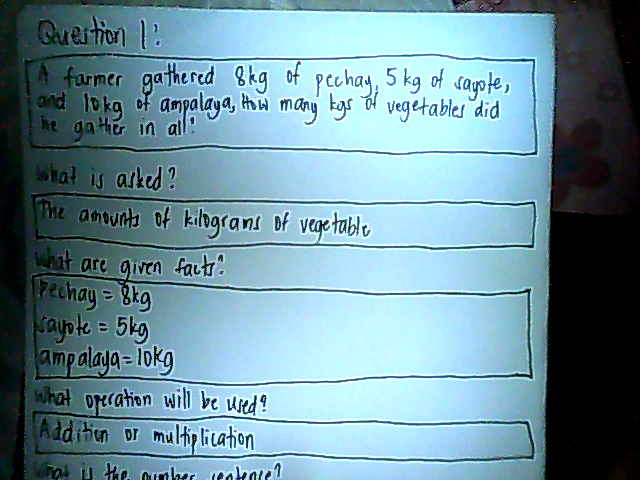 Question 1:
A farmer gathered 8kg of pechay, 5kg of sayote,
and 10kg of ampalaya, How many kgs of vegetables did
he gather in all?
What is asked?
The amounts of kilograms of vegetable
What are given facts?
Pechay = 8kg
sayote = 5kg
ampalaya = 10kg
What operation will be used?
Addition or multiplication
What is the number sentence?